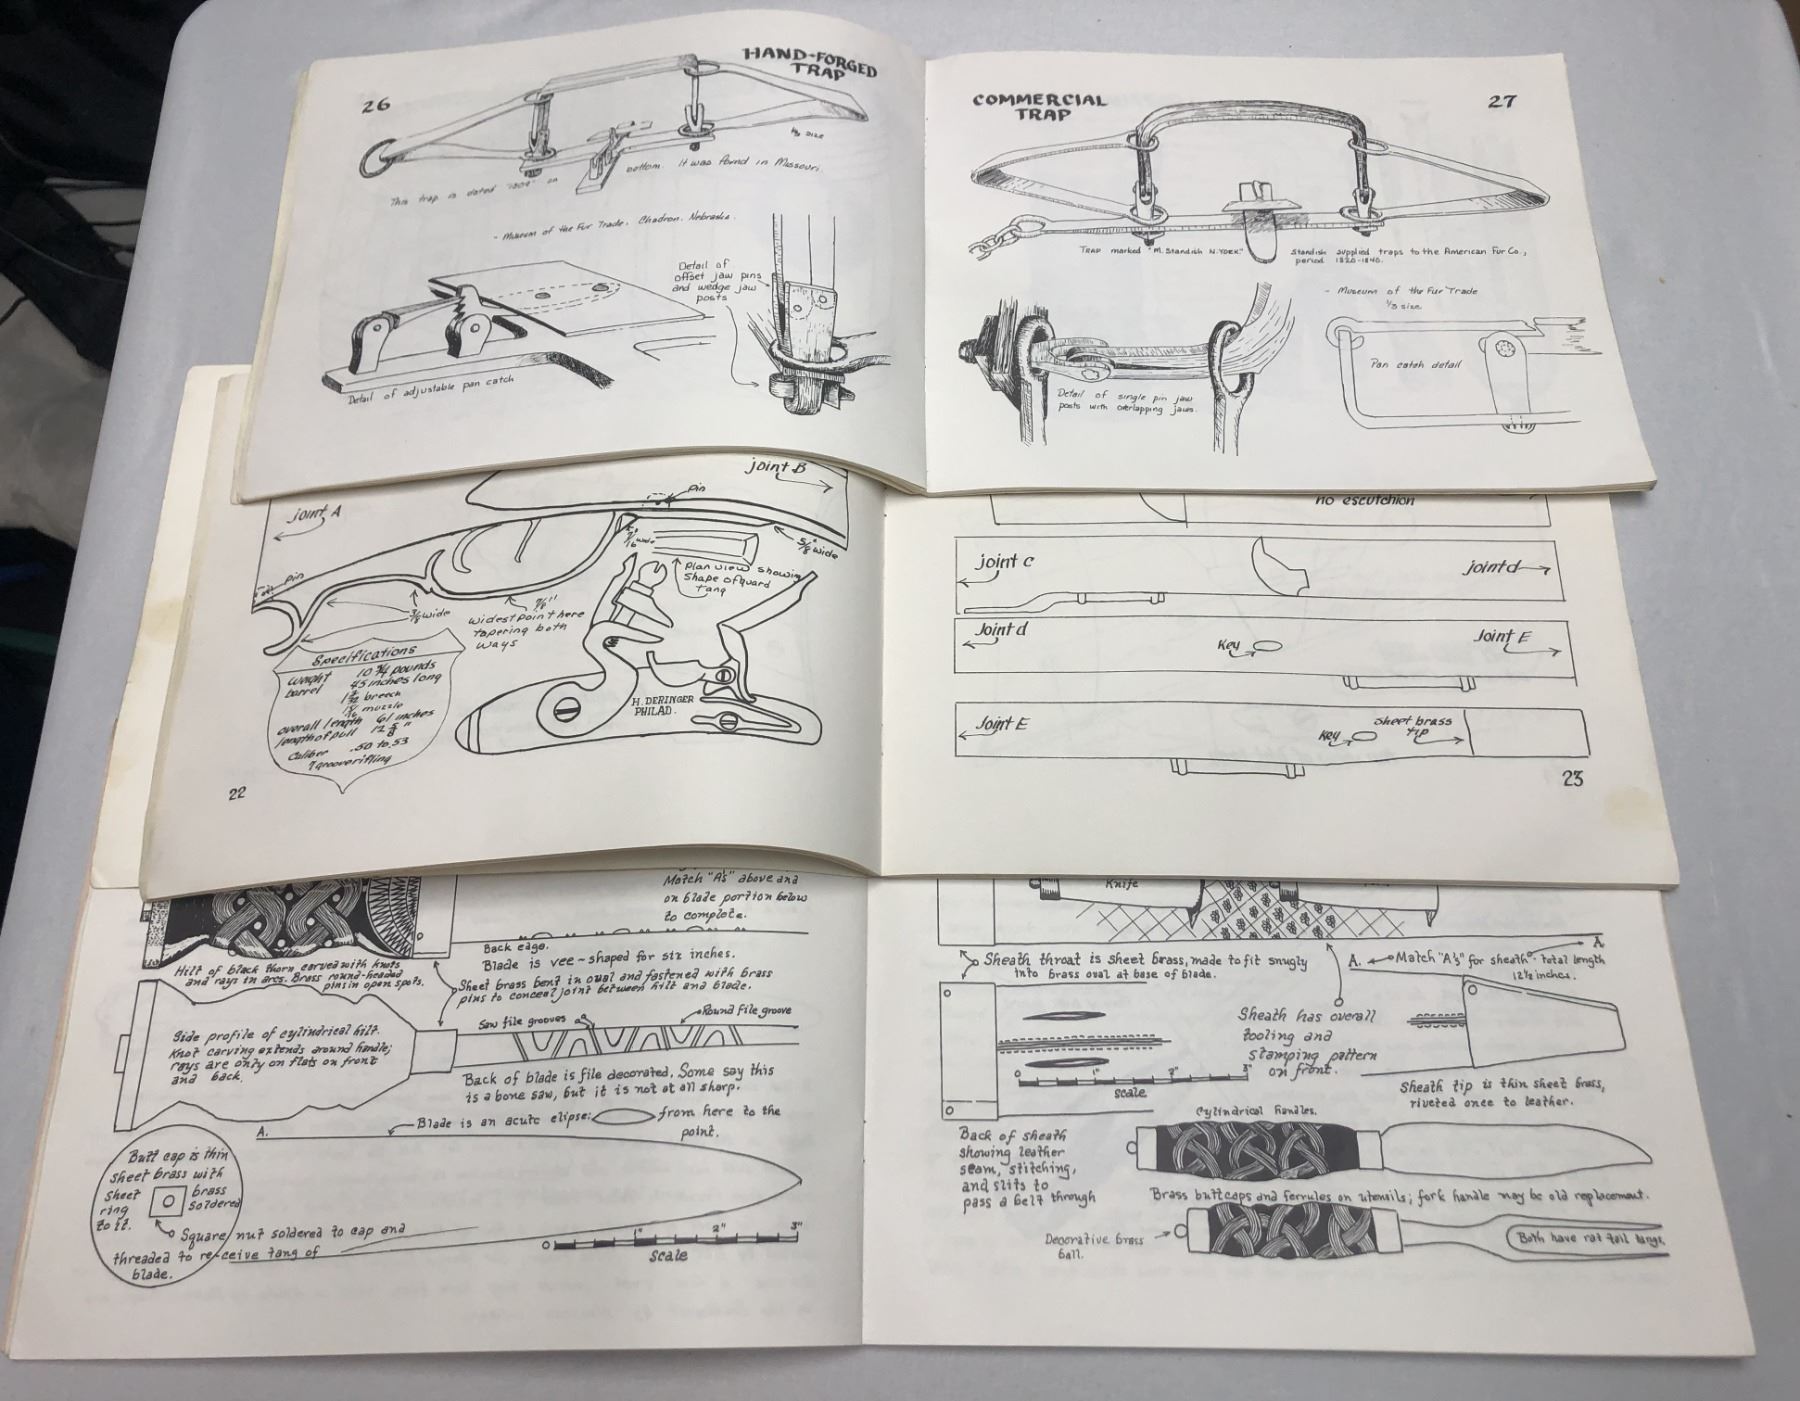 26
HAND-FORGED
TRAP
1/3 size
This trap is dated "1809" on bottom. It was found in Missouri.
- Museum of the Fur Trade, Chadron, Nebraska.
Detail of
offset jaw pins
and wedge jaw
posts
Detail of adjustable pan catch
COMMERCIAL
TRAP
27
TRAP marked "M. Standish N. YORK."
Standish supplied traps to the American Fur Co.,
period 1820-1840.
- Museum of the Fur Trade
1/3 size.
Pan catch detail
Detail of single pin jaw
posts with overlapping jaws.
joint A
joint B
pin
pin
7/16" wide
5/8" wide
Plan view showing
Shape of guard
tang
3/8 wide
7/8"
widest point here
tapering both
ways
Specifications
weight 10 3/4 pounds
barrel 45 inches long
breech
muzzle
overall length 61 inches
length of pull 12 5/8"
Caliber .50 to .53
7 groove rifling
H. DERINGER
PHILAD.
22
no escutchion
joint c
joint d
Joint d
Key
Joint E
Joint E
Key
sheet brass
tip
23
Match "A's" above and
on blade portion below
to complete.
Back edge.
Blade is vee-shaped for six inches.
Hilt of black thorn carved with knots
and rays in arcs. Brass round-headed
pins in open spots.
Sheet brass bent in oval and fastened with brass
pins to conceal joint between hilt and blade.
Saw file grooves
Round file groove
Side profile of cylindrical hilt.
Knot carving extends around handle;
rays are only on flats on front
and back.
Back of blade is file decorated. Some say this
is a bone saw, but it is not at all sharp.
Blade is an acute elipse: from here to the
point.
A.
Butt cap is thin
sheet brass with
sheet brass
ring soldered
to it.
Square nut soldered to cap and
threaded to receive tang of
blade.
0 1" 2" 3"
scale
Knife
Sheath throat is sheet brass, made to fit snugly
into brass oval at base of blade.
A
A. Match "A's" for sheath - total length
12 1/2 inches.
Sheath has overall
tooling and
stamping pattern
on front.
0 1" 2" 3"
scale
Sheath tip is thin sheet brass,
riveted once to leather.
Cylindrical handles.
Back of sheath
showing leather
seam, stitching,
and slits to
pass a belt through
Brass buttcaps and ferrules on utensils; fork handle may be old replacement.
Decorative brass
ball.
Both have rat tail tangs.